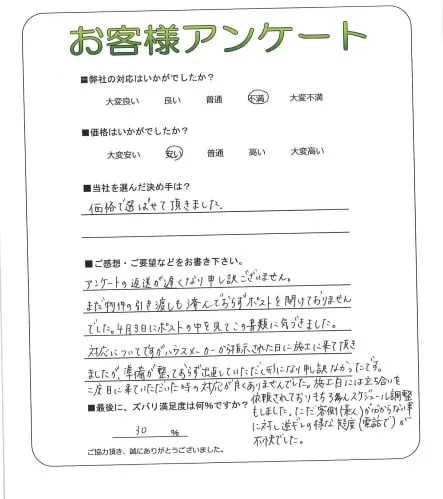 お客様アンケート
■弊社の対応はいかがでしたか?
大変良い 良い 普通 不満 大変不満
■価格はいかがでしたか?
大変安い 安い 普通 高い 大変高い
■当社を選んだ決め手は?
価格で選ばせて頂きました。
■ご感想・ご要望などをお書き下さい。
アンケートの返送が遅くなり申し訳ございません。
まだ物件の引き渡しも済んでおらずポストを開けておりません
でした。4月3日にポストの中を見てこの書類に気づきました。
対応についてですがハウスメーカーから指示された日に施工に来て頂き
ましたが、準備が整っておらず出直していただく形になり申し訳なかったです。
二度目に来ていただいた時の対応が良くありませんでした。施工日には立ち会いを
依頼されておりもちろんスケジュール調整
もしました。ただ客側(素人)が分からない事
に対し逆ギレの様な態度(電話で)が
不快でした。
■最後に、ズバリ満足度は何%ですか?
30 %
ご協力頂き、誠にありがとうございました。